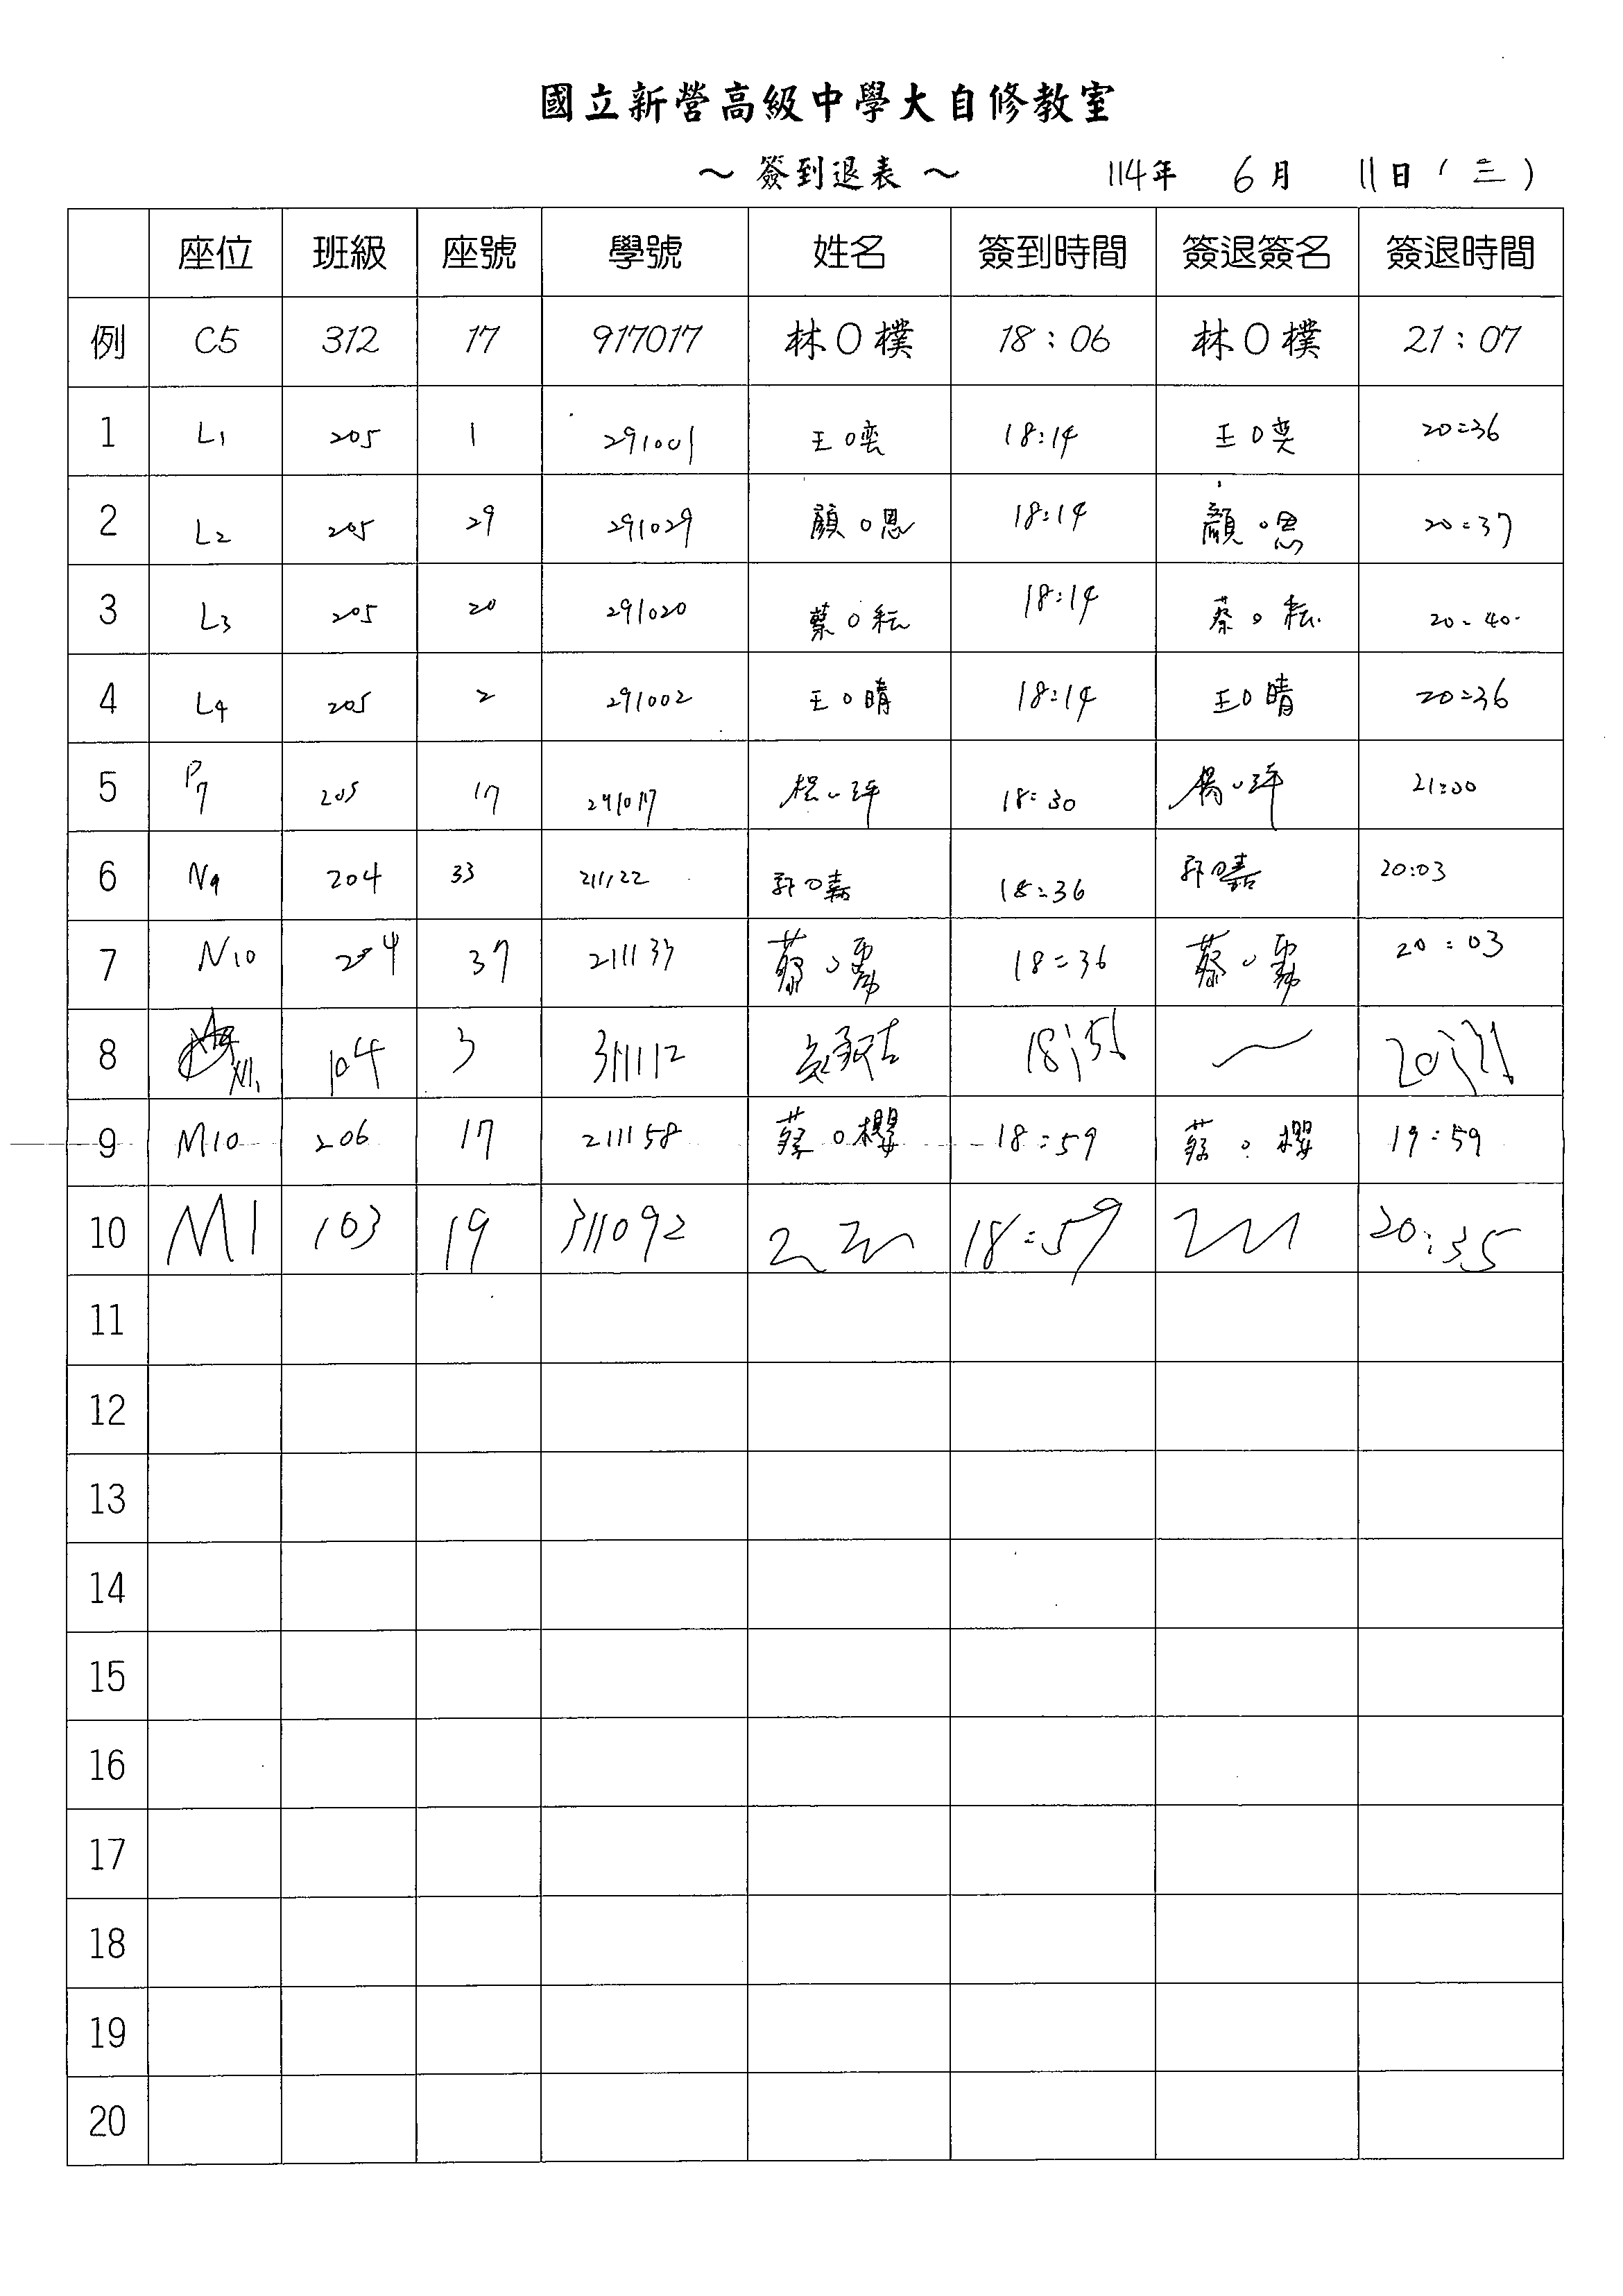 國立新營高級中學大自修教室
～ 簽到退表 ～ 114年 6月 11日 (三)
座位 班級 座號 學號 姓名 簽到時間 簽退簽名 簽退時間
例 C5 312 17 917017 林O樸 18:06 林O樸 21:07
1 L1 205 1 291001 王O奕 18:14 王O奕 20:36
2 L2 205 29 291029 顏O恩 18:14 顏O恩 20:37
3 L3 205 20 291020 蔡O耘 18:14 蔡O耘 20:40
4 L4 205 2 291002 王O晴 18:14 王O晴 20:36
5 P7 205 17 291017 18:30 21:00
6 N9 204 33 211122 郭O嘉 18:36 郭O嘉 20:03
7 N10 204 37 211133 蔡O 18:36 蔡O 20:03
8 104 3 311112
9 M10 206 17 211158 蔡O櫻 18:59 蔡O櫻 19:59
10 M1 103 19 311092 18:59 20:35
11
12
13
14
15
16
17
18
19
20